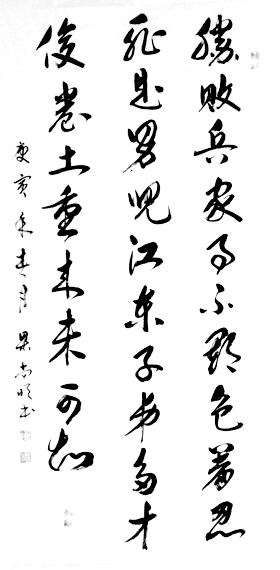 勝敗兵家事不期包羞忍
恥是男兒江東子弟多才
俊卷土重来未可知
庚寅年春月